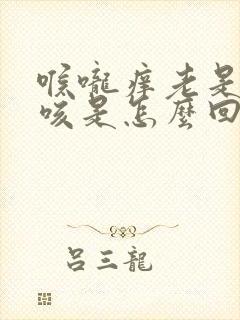 喉嚨痒老是
咳是怎麼回
吕三龍